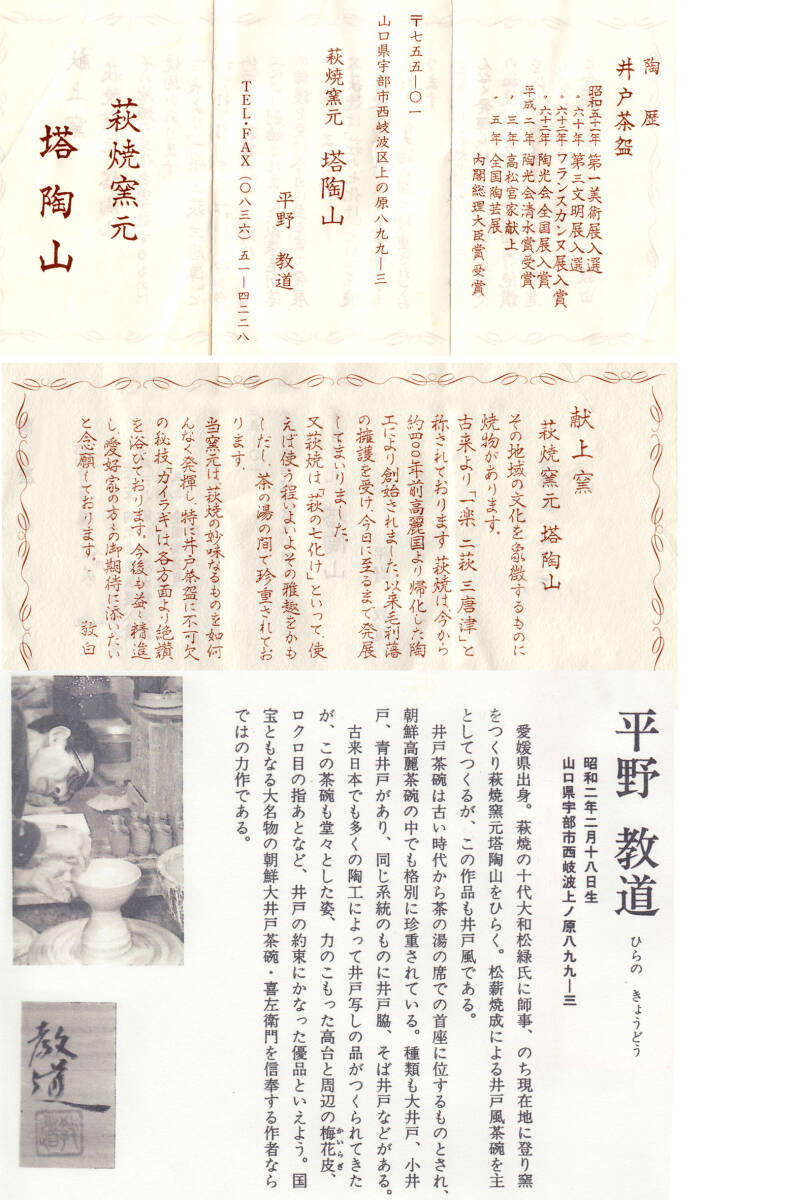 陶歴
井戸茶盌
昭和五十一年 第一美術展入選
〃 六十年 第三文明展入選
〃 六十二年 フランスカンヌ展入賞
〃 六十三年 陶光会全国展入賞
平成二年 陶光会清水賞受賞
〃 三年 高松宮家献上
〃 五年 全国陶芸展
内閣総理大臣賞受賞
〒七五五―〇一
山口県宇部市西岐波区上の原八九九―三
萩焼窯元 塔陶山
平野 教道
TEL・FAX(〇八三六)五一―四二二八
萩焼窯元
塔陶山
献上窯
萩焼窯元 塔陶山
その地域の文化を象徴するものに
焼物があります。
古来より「一楽 二萩 三唐津」と
称されております 萩焼は今から
約四〇〇年前高麗国より帰化した陶
工により創始されました、以来毛利藩
の擁護を受け、今日に至るまで発展
してまいりました。
又萩焼は「萩の七化け」といって、使
えば使う程いよいよその雅趣をかも
しだし、茶の湯の間で珍重されてお
ります。
当窯元は、萩焼の妙味なるものを如何
んなく発揮し、特に井戸茶盌に不可欠
の秘技「カイラギ」は、各方面より絶讃
を浴びております。今後も益々精進
し、愛好家の方々の御期待に添いたい
と念願しております。 敬白
平野 教道 ひらの きょうどう
昭和二年二月十八日生
山口県宇部市西岐波上ノ原八九九―三
愛媛県出身。萩焼の十代大和松緑氏に師事、のち現在地に登り窯
をつくり萩焼窯元塔陶山をひらく。松薪焼成による井戸風茶碗を主
としてつくるが、この作品も井戸風である。
井戸茶碗は古い時代から茶の湯の席での首座に位するものとされ、
朝鮮高麗茶碗の中でも格別に珍重されている。種類も大井戸、小井
戸、青井戸があり、同じ系統のものに井戸脇、そば井戸などがある。
古来日本でも多くの陶工によって井戸写しの品がつくられてきた
が、この茶碗も堂々とした姿、力のこもった高台と周辺の梅花皮、
かいらぎ
ロクロ目の指あとなど、井戸の約束にかなった優品といえよう。国
宝ともなる大名物の朝鮮大井戸茶碗・喜左衛門を信奉する作者なら
ではの力作である。
教道